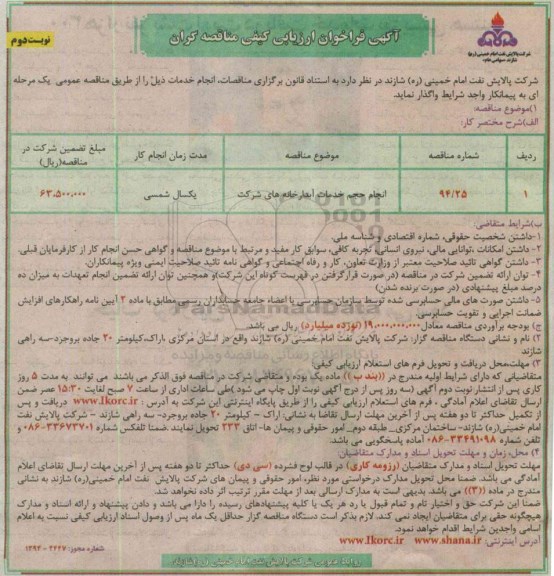 آگهی فراخوان ارزیابی کیفی مناقصه گران
نوبت دوم
شرکت پالایش نفت امام خمینی (ره)
شازند-سهامی عام
شرکت پالایش نفت امام خمینی (ره) شازند در نظر دارد به استناد قانون برگزاری مناقصات، انجام خدمات ذیل را از طریق مناقصه عمومی یک مرحله
ای به پیمانکار واجد شرایط واگذار نماید.
۱)موضوع مناقصه:
الف)شرح مختصر کار:
ردیف شماره مناقصه موضوع مناقصه مدت زمان انجام کار مبلغ تضمین شرکت در مناقصه(ریال)
۱ ۹۴/۲۵ انجام حجم خدمات آبدارخانه های شرکت یکسال شمسی ۶۳،۵۰۰،۰۰۰
ب)شرایط متقاضی:
۱-داشتن شخصیت حقوقی، شماره اقتصادی و شناسه ملی
۲- داشتن امکانات ،توانایی مالی، نیروی انسانی، تجربه کافی، سوابق کار مفید و مرتبط با موضوع مناقصه و گواهی حسن انجام کار از کارفرمایان قبلی.
۳- داشتن گواهی تائید صلاحیت معتبر از وزارت تعاون، کار و رفاه اجتماعی و گواهی نامه تائید صلاحیت ایمنی ویژه پیمانکاران.
۴- توان ارائه تضمین شرکت در مناقصه (در صورت قرارگرفتن در فهرست کوتاه این شرکت)و همچنین توان ارائه تضمین انجام تعهدات به میزان ده
درصد مبلغ پیشنهادی (در صورت برنده شدن)
۵- داشتن صورت های مالی حسابرسی شده توسط سازمان حسابرسی یا اعضاء جامعه حسابداران رسمی مطابق با ماده ۲ آیین نامه راهکارهای افزایش
ضمانت اجرایی و تقویت حسابرسی.
ج) بودجه برآوردی مناقصه معادل ۱۹،۰۰۰،۰۰۰،۰۰۰ (نوزده میلیارد) ریال می باشد.
۲) نام و نشانی دستگاه مناقصه گزار: شرکت پالایش نفت امام خمینی (ره) شازند واقع در استان مرکزی ،اراک،کیلومتر ۲۰ جاده بروجرد-سه راهی
شازند
۳)مهلت،محل دریافت و تحویل فرم های استعلام ارزیابی کیفی:
متقاضیانی که دارای شرایط اولیه مندرج در ((بند ب )) ماده یک بوده و متقاضی شرکت در مناقصه فوق الذکر می باشند می توانند به مدت ۵ روز
کاری پس از انتشار نوبت دوم آگهی (سه روز پس از درج آگهی نوبت اول چاپ می شود )طی ساعات اداری از ساعت ۷ صبح لغایت ۱۵:۳۰ عصر ضمن
ارسال تقاضای اعلام آمادگی ، فرم های استعلام ارزیابی کیفی را از طریق پایگاه اینترنتی این شرکت به آدرس : www.Ikorc.ir دریافت و پس
از تکمیل حداکثر تا دو هفته پس از آخرین مهلت ارسال تقاضا به نشانی: اراک - کیلومتر ۲۰ جاده بروجرد- سه راهی شازند - شرکت پالایش نفت
امام خمینی(ره) شازند- ساختمان مرکزی_ طبقه دوم_ امور حقوقی و پیمان ها- اتاق ۲۳۳ تحویل نمایند .ضمنا تلفکس شماره ۳۳۶۷۳۷۰۱-۰۸۶ و
تلفن شماره ۳۳۴۹۱۰۹۸-۰۸۶ آماده پاسخگویی می باشد.
۴) محل، زمان و مهلت تحویل اسناد و مدارک متقاضیان:
مهلت تحویل اسناد و مدارک متقاضیان (رزومه کاری) در قالب لوح فشرده (سی دی) حداکثر تا دو هفته پس از آخرین مهلت ارسال تقاضای اعلام
آمادگی می باشد. ضمنا محل تحویل مدارک درخواستی مورد نظر، امور حقوقی و پیمان های شرکت پالایش نفت امام خمینی(ره) شازند به نشانی
مندرج در ماده ((۳)) می باشد. بدیهی است به مدارک ارسالی بعد از مهلت مقرر ترتیب اثر داده نخواهد شد.
ضمنا این شرکت حق و اختیار تام و تمام قبول یا رد هر یک یا کلیه پیشنهادهای رسیده را دارا می باشد و دادن پیشنهاد و ارائه اسناد و مدارک
هیچگونه حقی برای متقاضیان ایجاد نمی کند. لازم بذکر است دستگاه مناقصه گزار حداقل یک ماه پس از وصول اسناد ارزیابی کیفی نسبت به اعلام
اسامی واجدین شرایط اقدام خواهد نمود.
آدرس اینترنتی: www.shana.ir www.Ikorc.ir
شماره مجوز: ۲۲۲۶-۱۳۹۴
روابط عمومی شرکت پالایش نفت امام خمینی (ره) شازند
ParsNamadData
پایگاه اطلاع رسانی مناقصه و مزایده